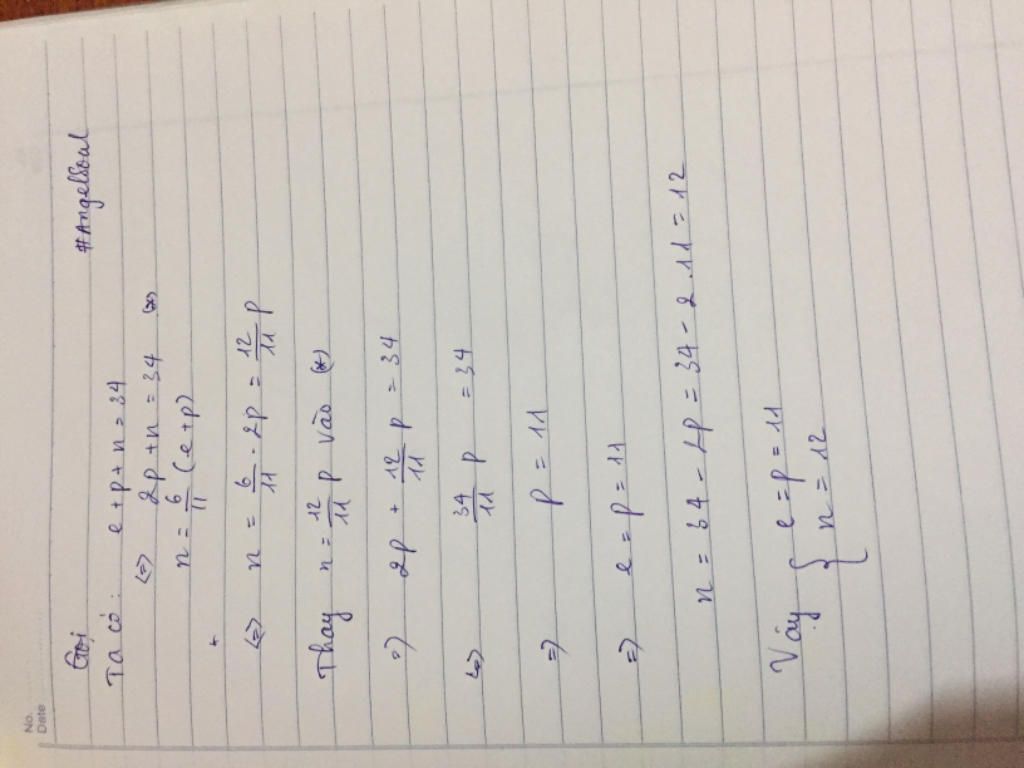 No.
Date
#AngelSoul
Gọi
Ta có: e + p + n = 34
<=> 2p + n = 34 (*)
n = 6/11 (e + p)
+
<=> n = 6/11 . 2p = 12/11 p
Thay n = 12/11 p vào (*)
=> 2p + 12/11 p = 34
<=> 34/11 p = 34
=> p = 11
=> e = p = 11
n = 34 - 2p = 34 - 2.11 = 12
Vậy { e = p = 11
n = 12